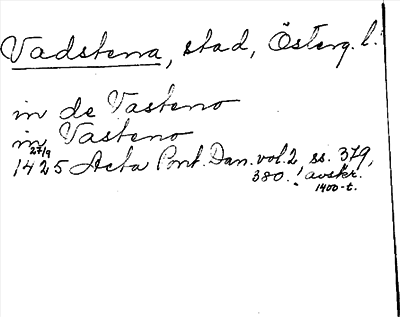 Vadstena, stad, Österg. l.
in de Vasteno
in Vasteno
27/9
1425 Acta Pont. Dan. vol. 2 ss. 379,
380. ! avskr.
1400-t.